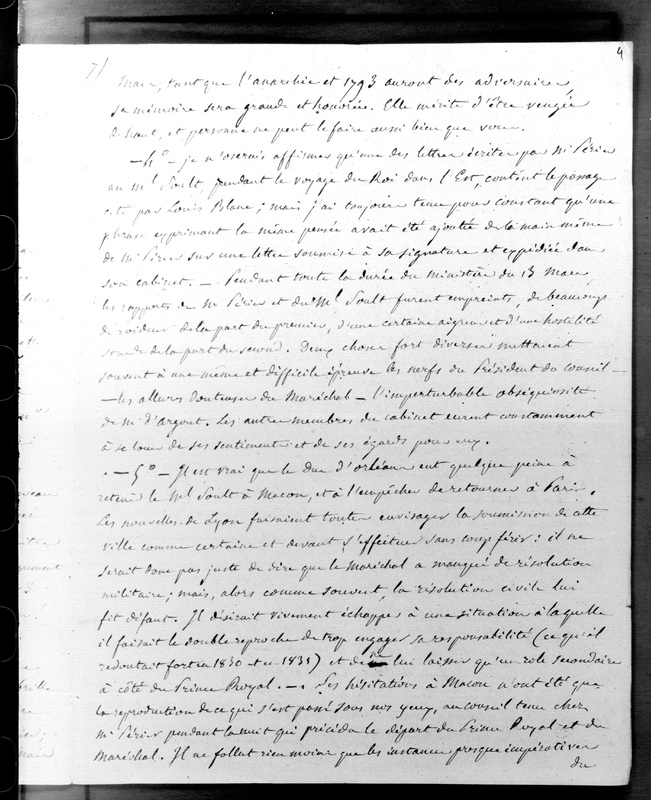 4
7/
Mars, tant que l'anarchie et 1793 auront des adversaires,
sa mémoire sera grande et honorée. Elle mérite d'être vengée
de haut, et personne ne peut le faire aussi bien que vous.
— 4° — je n'oserais affirmer qu'une des lettres écrites par Mr Périer
au Mal Soult, pendant le voyage du Roi dans l'Est, contînt le passage
cité par Louis Blanc; mais j'ai toujours tenu pour constant qu'une
phrase exprimant la même pensée avait été ajoutée de la main même
de Mr Périer sur une lettre soumise à sa signature et expédiée dans
son cabinet. — Pendant toute la durée du ministère du 13 Mars,
les rapports de Mr Périer et du Mal Soult furent empreints, de beaucoup
de roideur de la part du premier, d'une certaine aigreur et d'une hostilité
sourde de la part du second. Deux choses fort diverses mettaient
souvent à une même et difficile épreuve les nerfs du Président du Conseil —
— les allures douteuses du Maréchal — l'imperturbable obséquiosité
de Mr d'Argout. Les autres membres du cabinet eurent constamment
à se louer de ses sentiments et de ses égards pour eux.
— 5° — Il est vrai que le Duc d'Orléans eut quelque peine à
retenir le Mal Soult à Macon, et à l'empêcher de retourner à Paris.
Les nouvelles de Lyon faisaient toutes envisager la soumission de cette
ville comme certaine et devant s'effectuer sans coup férir: il ne
serait donc pas juste de dire que le Maréchal a manqué de résolution
militaire; mais, alors comme souvent, la résolution civile lui
fit défaut. Il désirait vivement échapper à une situation à laquelle
il faisait le double reproche de trop engager sa responsabilité (ce qu'il
redoutait fort en 1830 et en 1831) et de ne lui laisser qu'un rôle secondaire
à côté du Prince Royal. — Ses hésitations à Macon n'ont été que
la reproduction de ce qui s'est passé sous nos yeux, au conseil tenu chez
Mr Périer pendant la nuit qui précéda le départ du Prince Royal et du
Maréchal. Il ne fallut rien moins que les instances presque impératives
du